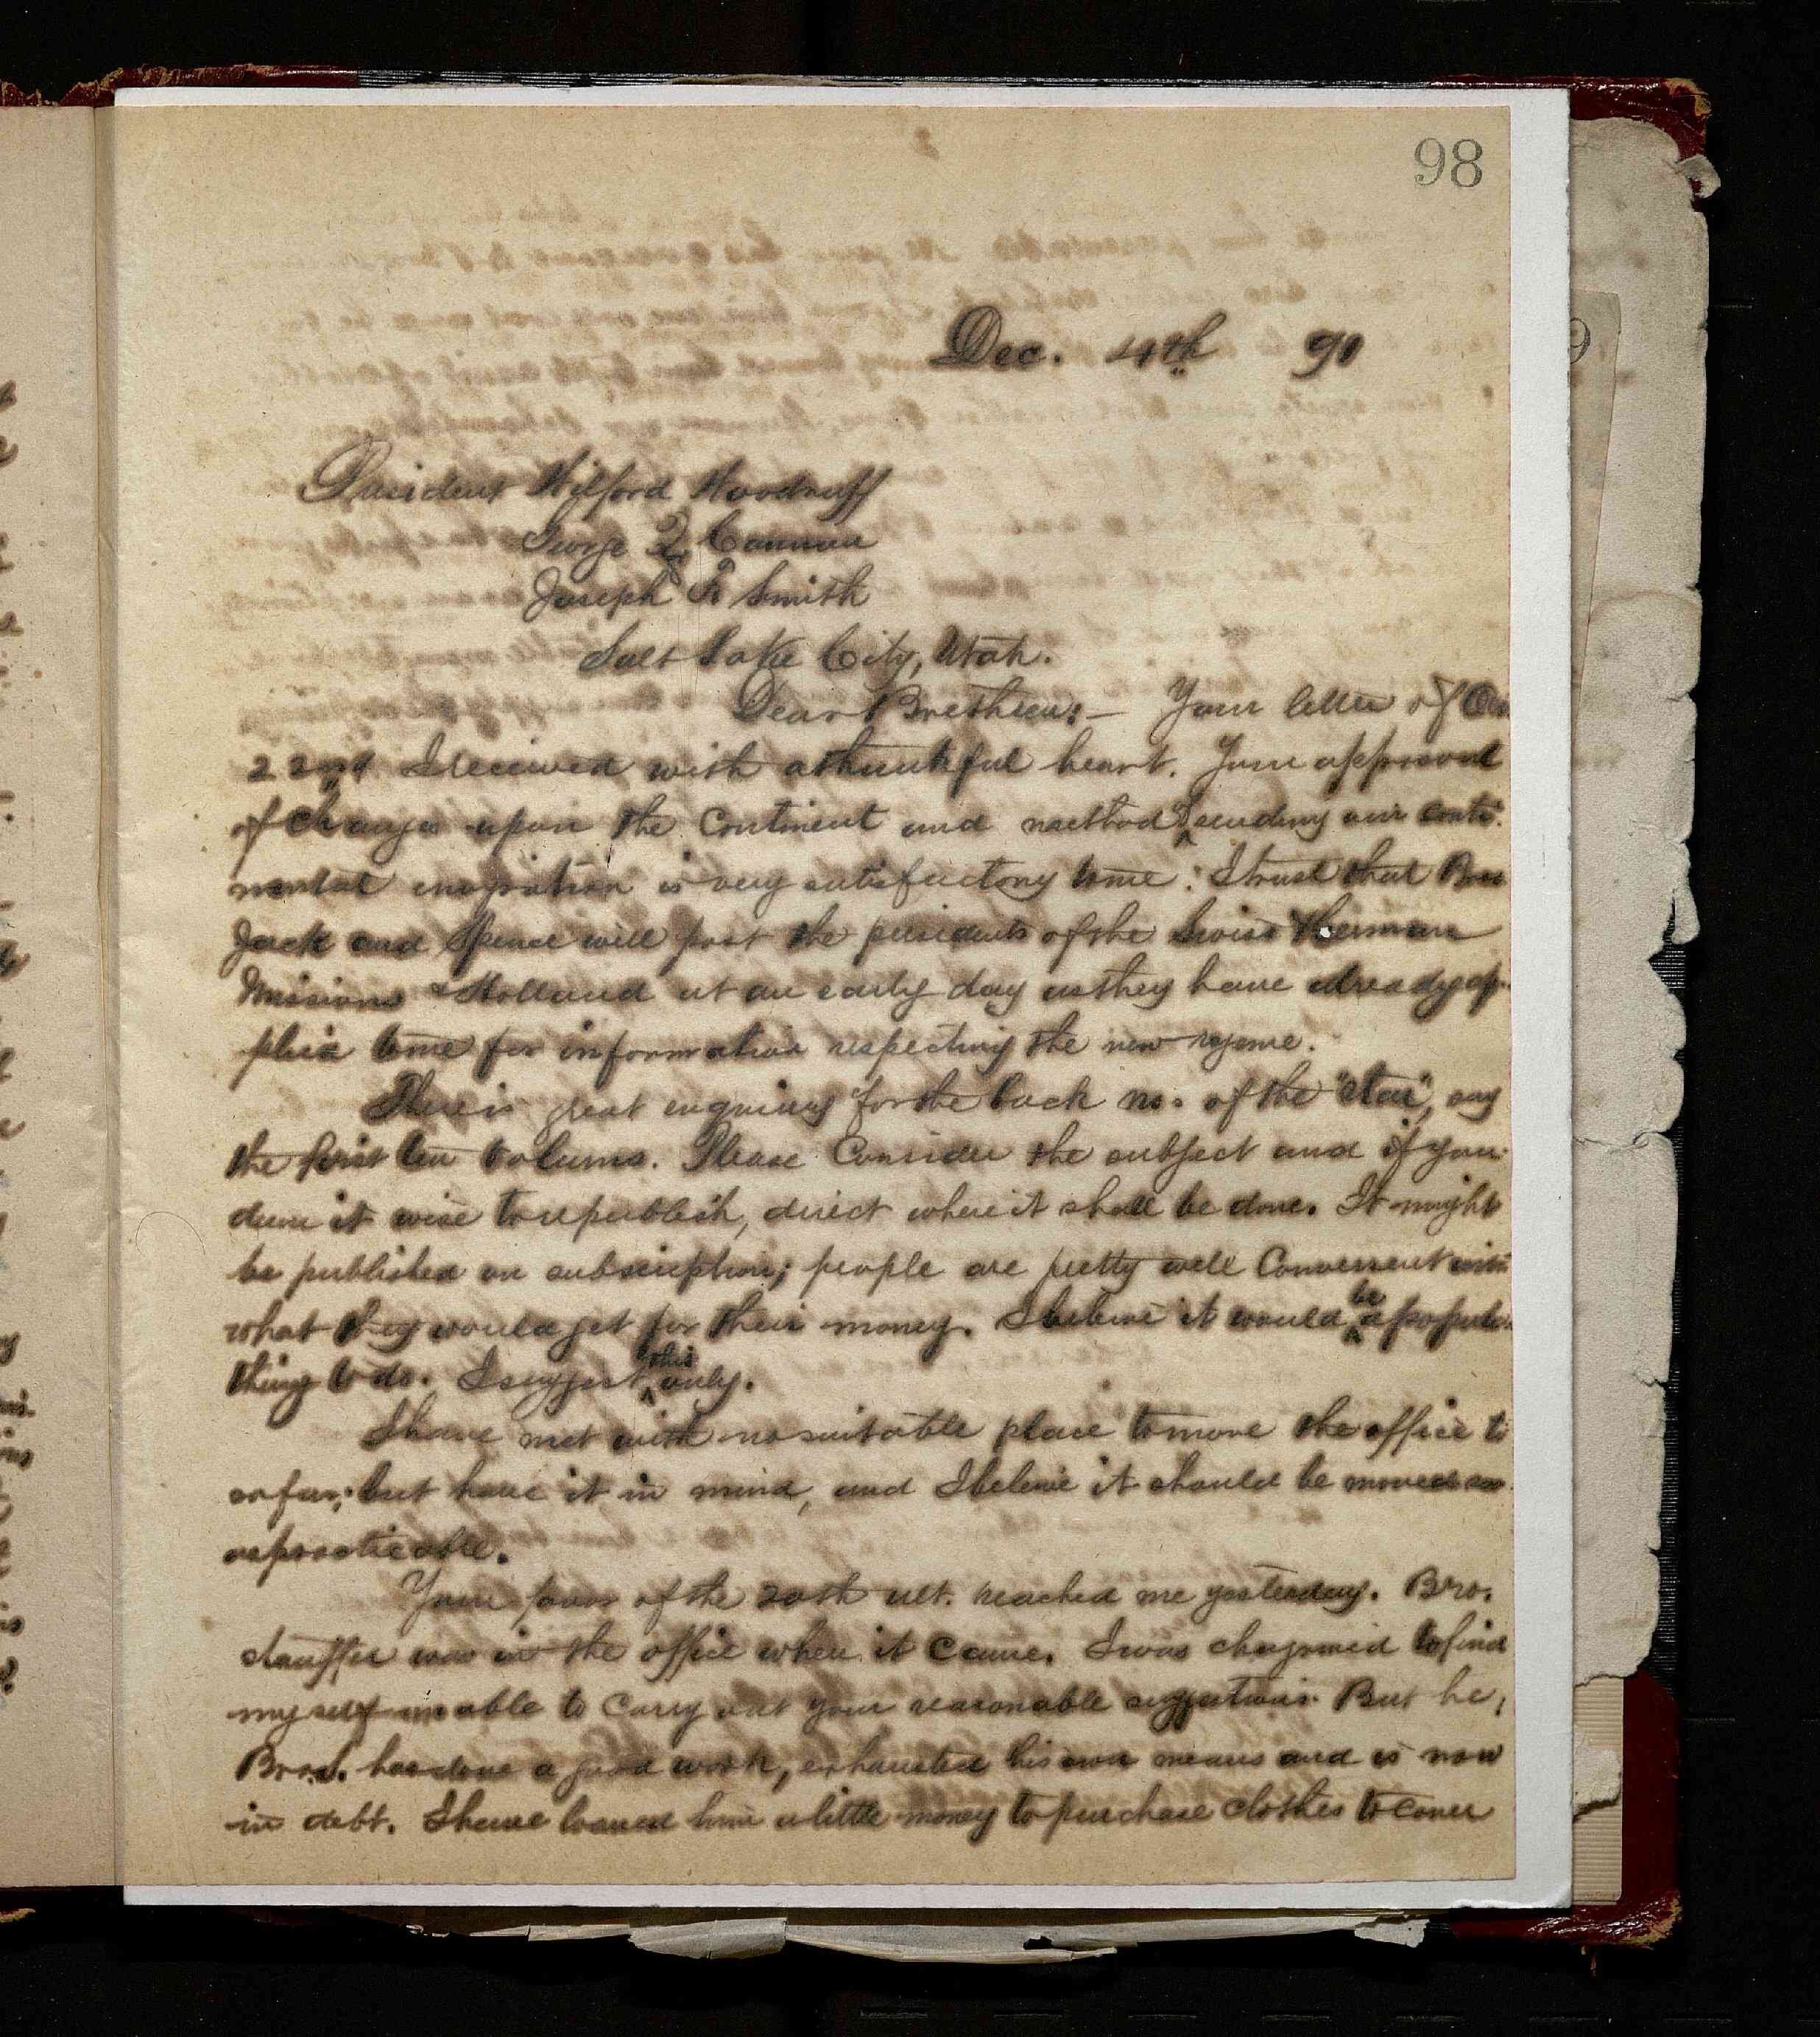 98
Dec. 4th 90
President Wilford Woodruff
George Q Cannon
Joseph F Smith
Salt Lake City, Utah.
Dear Brethren:— Your letter of
22nd I received with a thankful heart. Your approval
of changes upon the Continent and method of sending our conti-
nental emigration is very satisfactory to me. I trust that Bros
Jack and Spence will post the presidents of the Swiss & German
Missions & Holland at an early day as they have already ap-
plied to me for information respecting the new regime.
There is great enquiry for the back no. of the "Star", say
the first ten volums. Please Consider the subject and if you
deem it wise to republish, direct where it shall be done. It might
be published on subscription; people are pretty well Conversent with
what they would get for their money. I believe it would be a popular
thing to do. I suggest this only.
I have met with no suitable place to move the office to
so far; but have it in mind, and I believe it should be moved
as practicable.
Your favor of the 20th ult. reached me yesterday. Bro.
Stauffer was in the office when it Came. I was chagrined to find
myself unable to Carry out your reasonable suggestions. But he,
Bro. S. has done a good work, exhausted his own means and is now
in debt. I have loaned him a little money to purchase clothes to cover